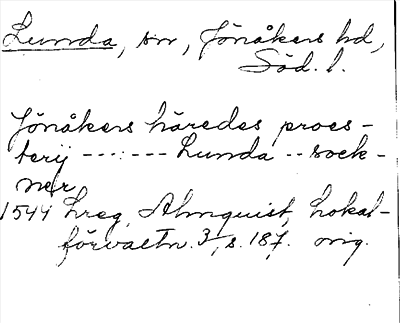 Lunda, sn, Jönåkers hd,
Söd. l.
Jönåkers häredes proes-
terij ---:--- Lunda -- sock-
ner
1544 Lreg. Almquist, Lokal-
förvaltn. 3, s. 187. orig.